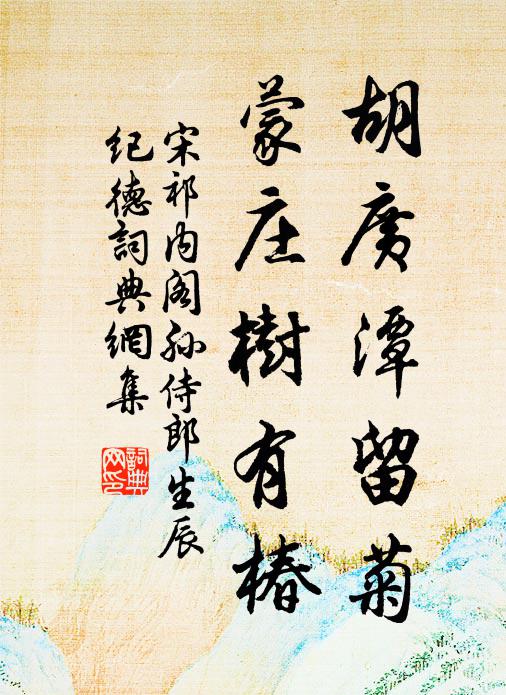 胡广潭留菊
蒙庄樹有椿
宋祁内阁孙侍郎生辰
纪德詞典網集
詞典网印